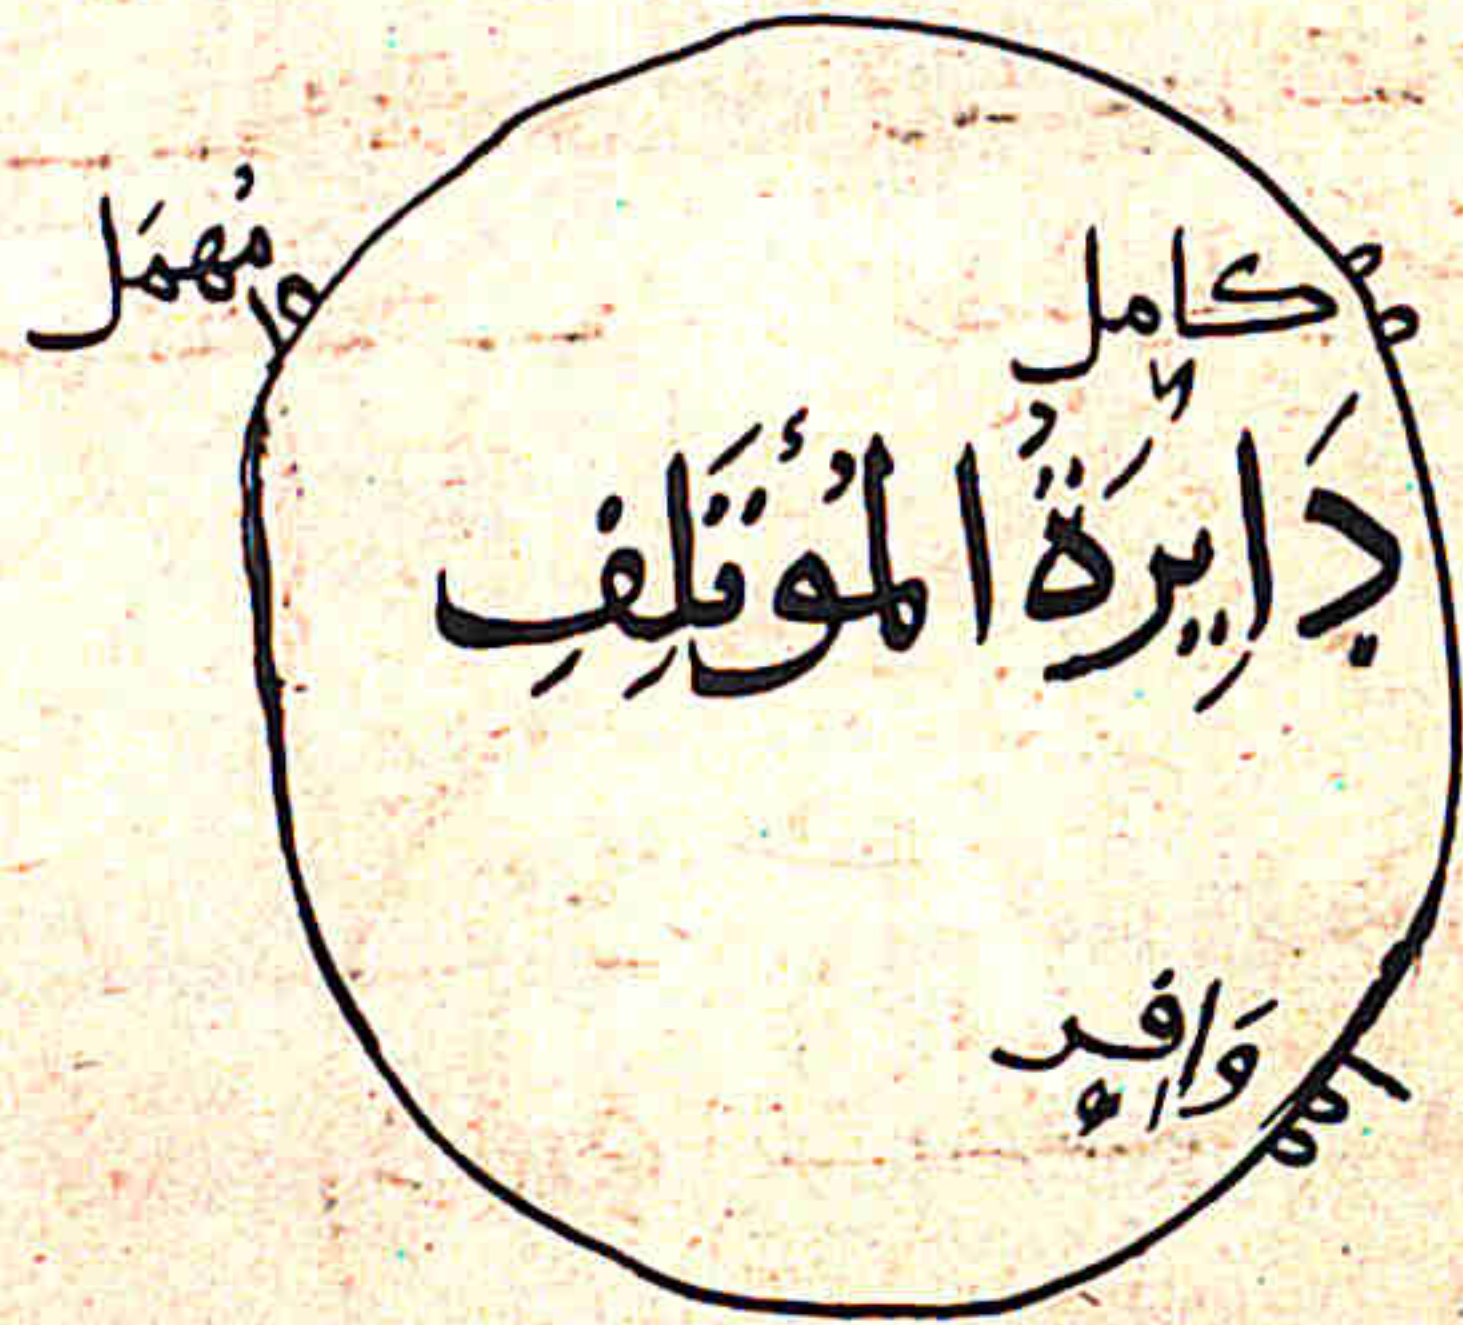 مُهمَل
كامل
دَايِرَةُ المُؤتَلِفِ
وَافِر